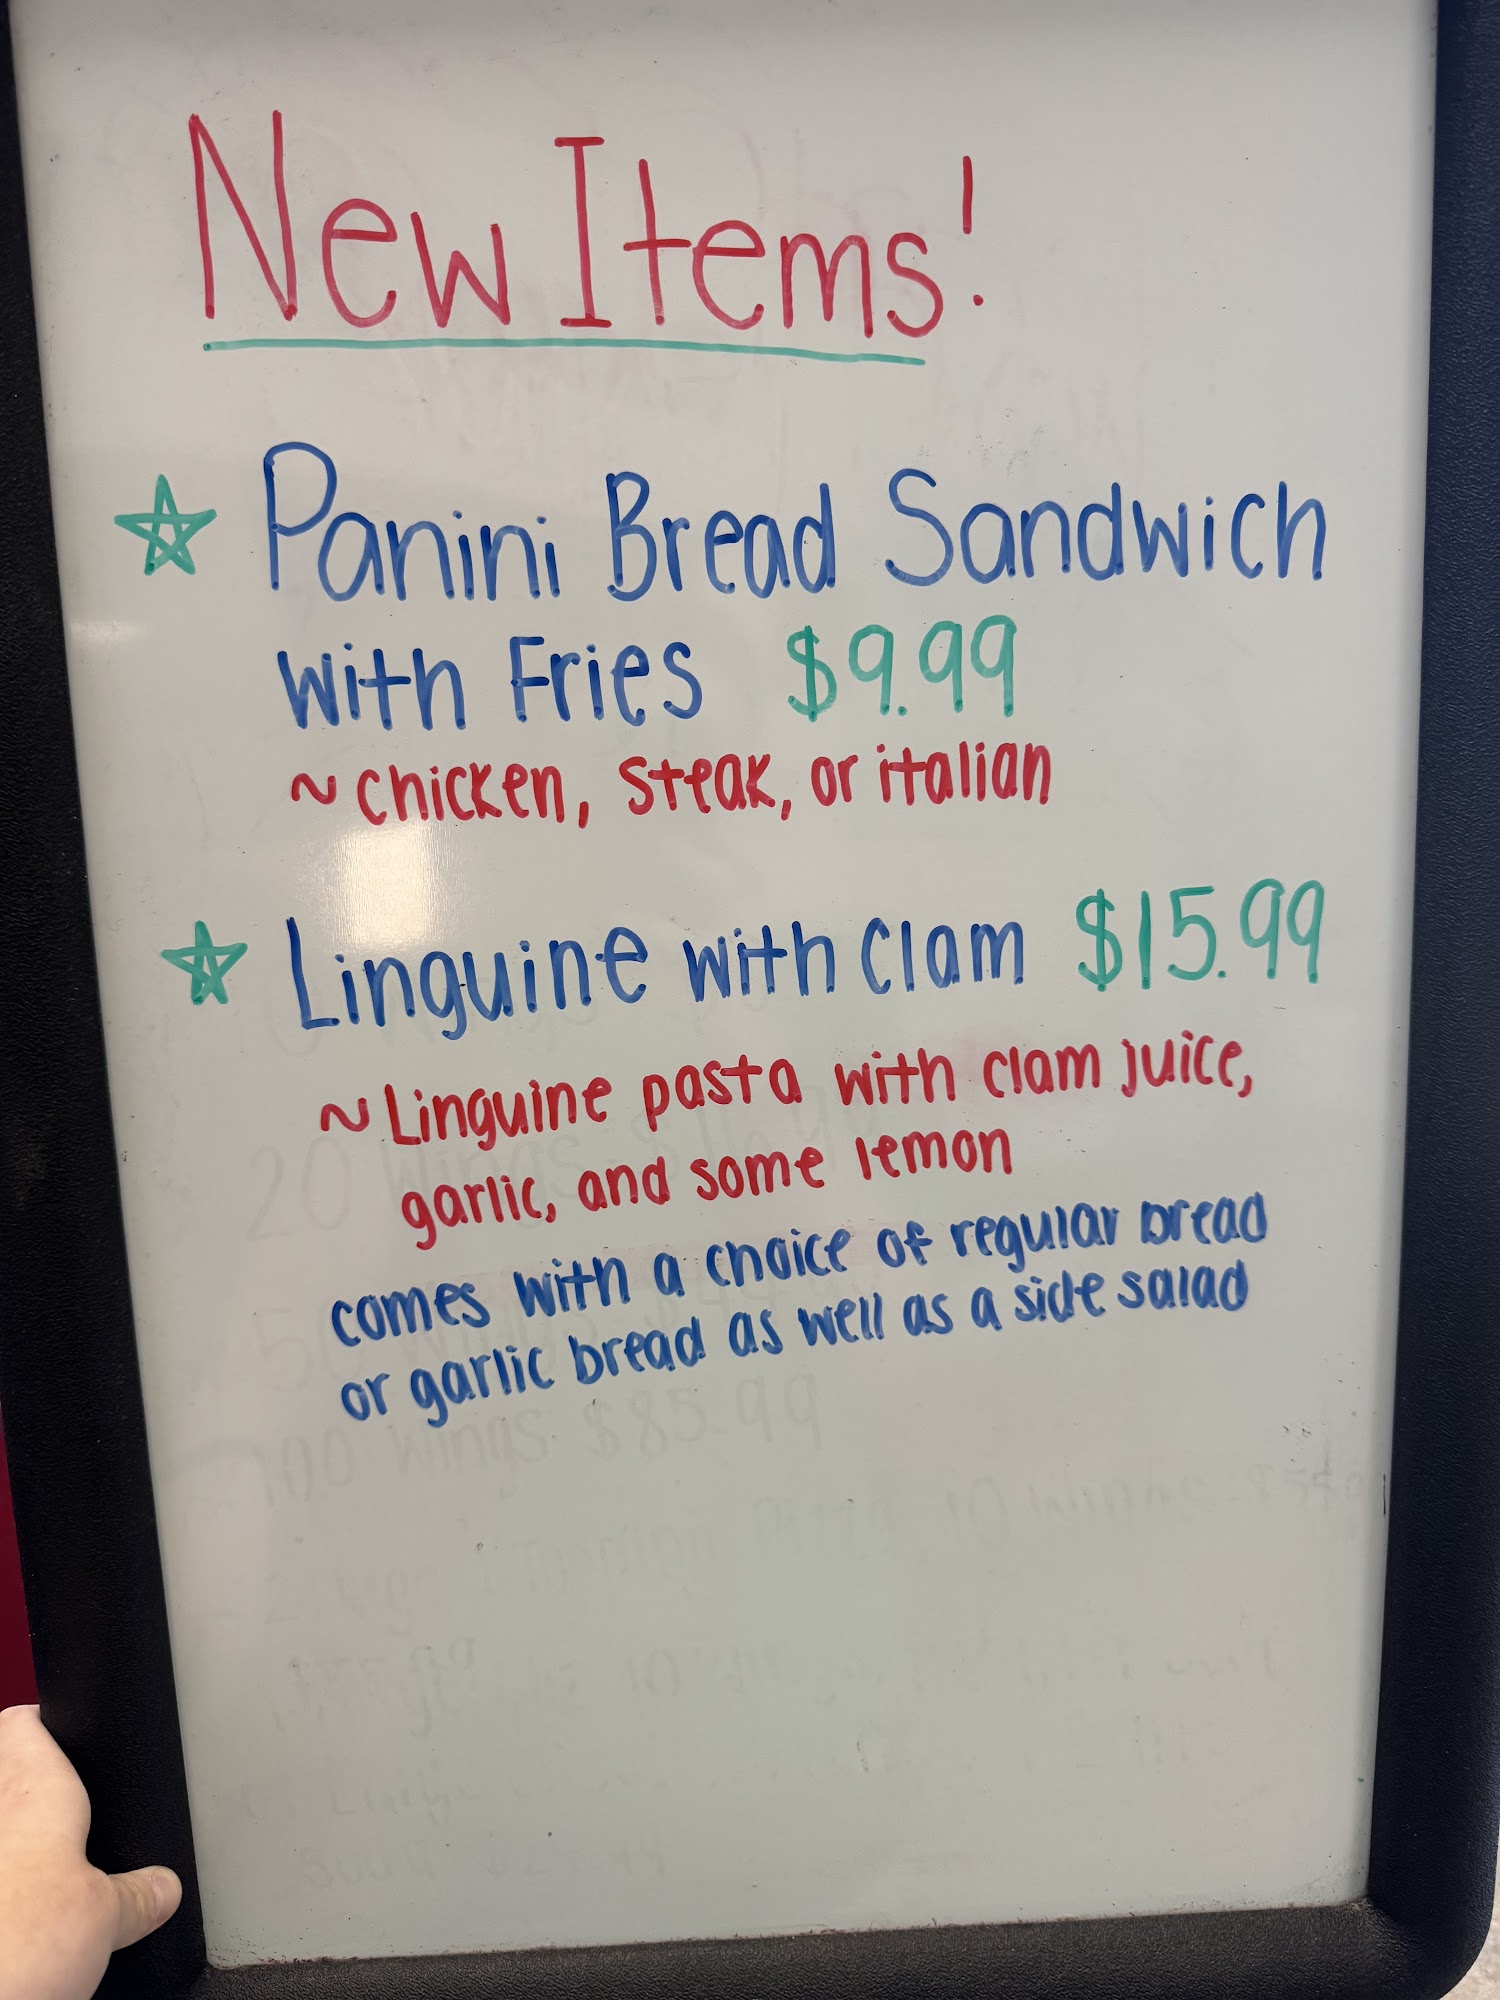 New Items!
Panini Bread Sandwich
with Fries $9.99
~ chicken, steak, or italian
Linguine with Clam $15.99
~ Linguine pasta with clam juice,
garlic, and some lemon
comes with a choice of regular bread
or garlic bread as well as a side salad
20 Wings $16.99
50 Wings $44
100 Wings $85.99